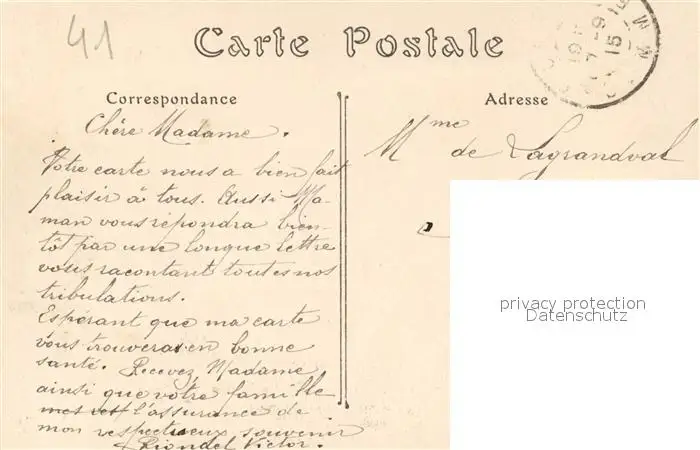 41
Carte Postale
Correspondance
Chère Madame.
Votre carte nous a bien fait
plaisir à tous. Aussi Ma-
man vous répondra bien-
tôt par une longue lettre
vous racontant toutes nos
tribulations.
Espérant que ma carte
vous trouveras en bonne
santé. Recevez Madame
ainsi que votre famille
l'assurance de
mon respectueux souvenir
Riondel Victor.
Adresse
Mme
de Lagrandval
privacy protection
Datenschutz